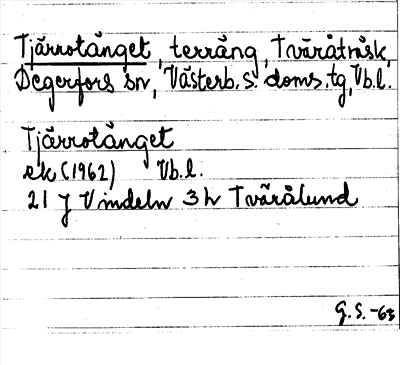 Tjärrotånget, terräng, Tväråträsk,
Degerfors sn, Västerb. s. doms. tg, Vb.l.
Tjärrotånget
ek (1962) Vb.l.
21 J Vindeln 3 h Tvärålund
G.S. -63